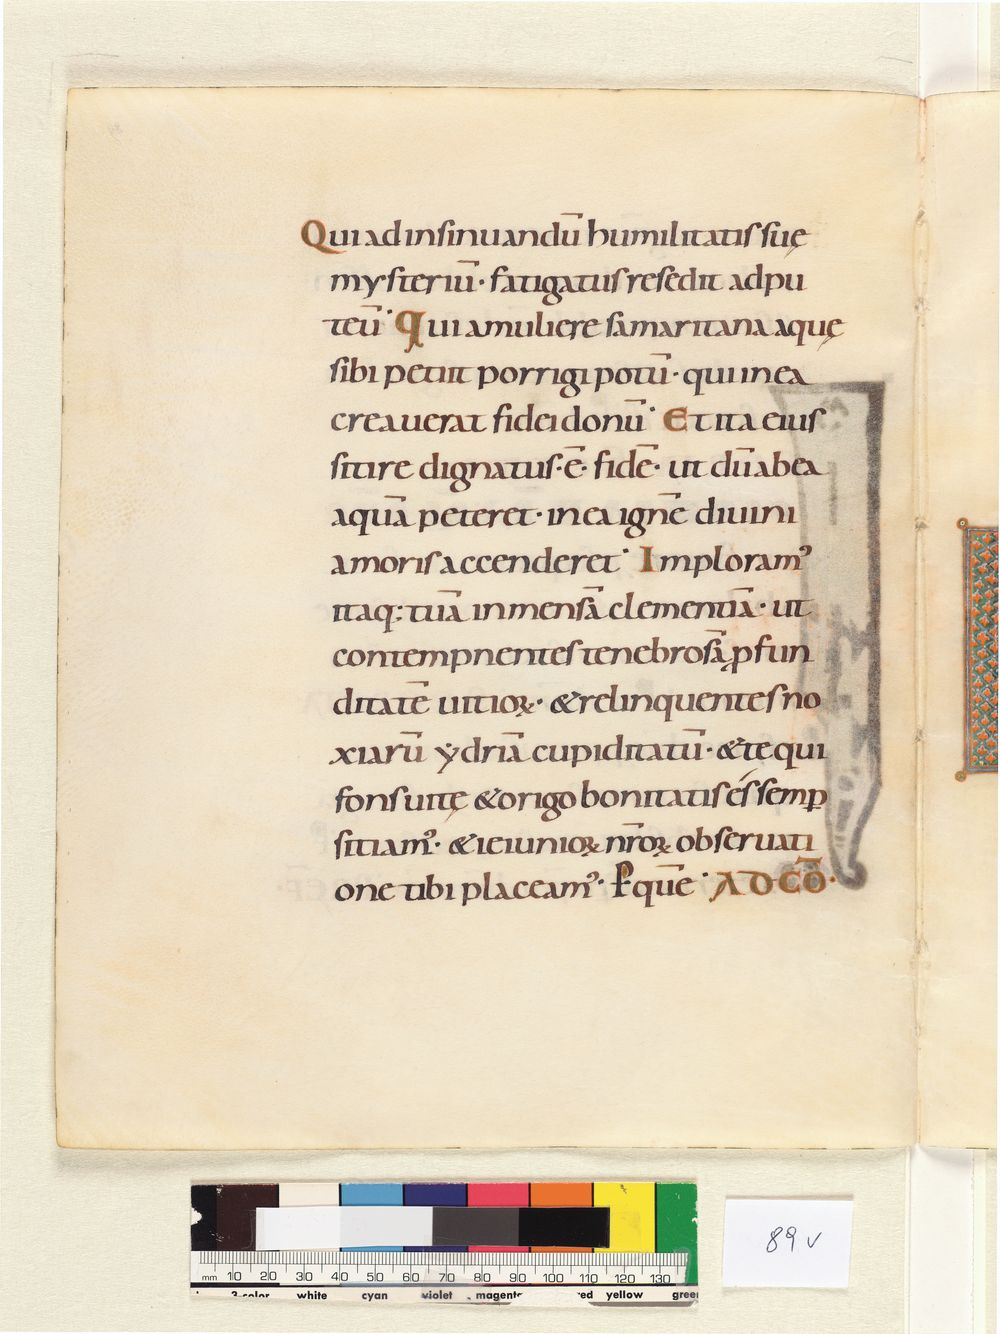 Qui ad insinuandū humilitatis suę
mysteriū· fatigatus resedit ad pu
teū· Qui a muliere samaritana aquę
sibi petiit porrigi potū· qui in ea
creauerat fidei donū· Et ita eius
sitire dignatus·ē· fidē· ut dū ab ea
aquā peteret· in ea ignē diuini
amoris accenderet· Imploram᾽
itaq: tuā inmensā clementiā· ut
contempnentes tenebrosā ꝓfun
ditatē uitioꝝ· & relinquentes no
xiarū ydriā cupiditatū· & te qui
fons uitę & origo bonitatis es semꝑ
sitiam᾽· & ieiunioꝝ nr̄oꝝ obseruati
one tibi placeam᾽· P quē· AD CŌ·
89 v
mm 10 20 30 40 50 60 70 80 90 100 110 120 130
3-color white cyan violet magenta red yellow green